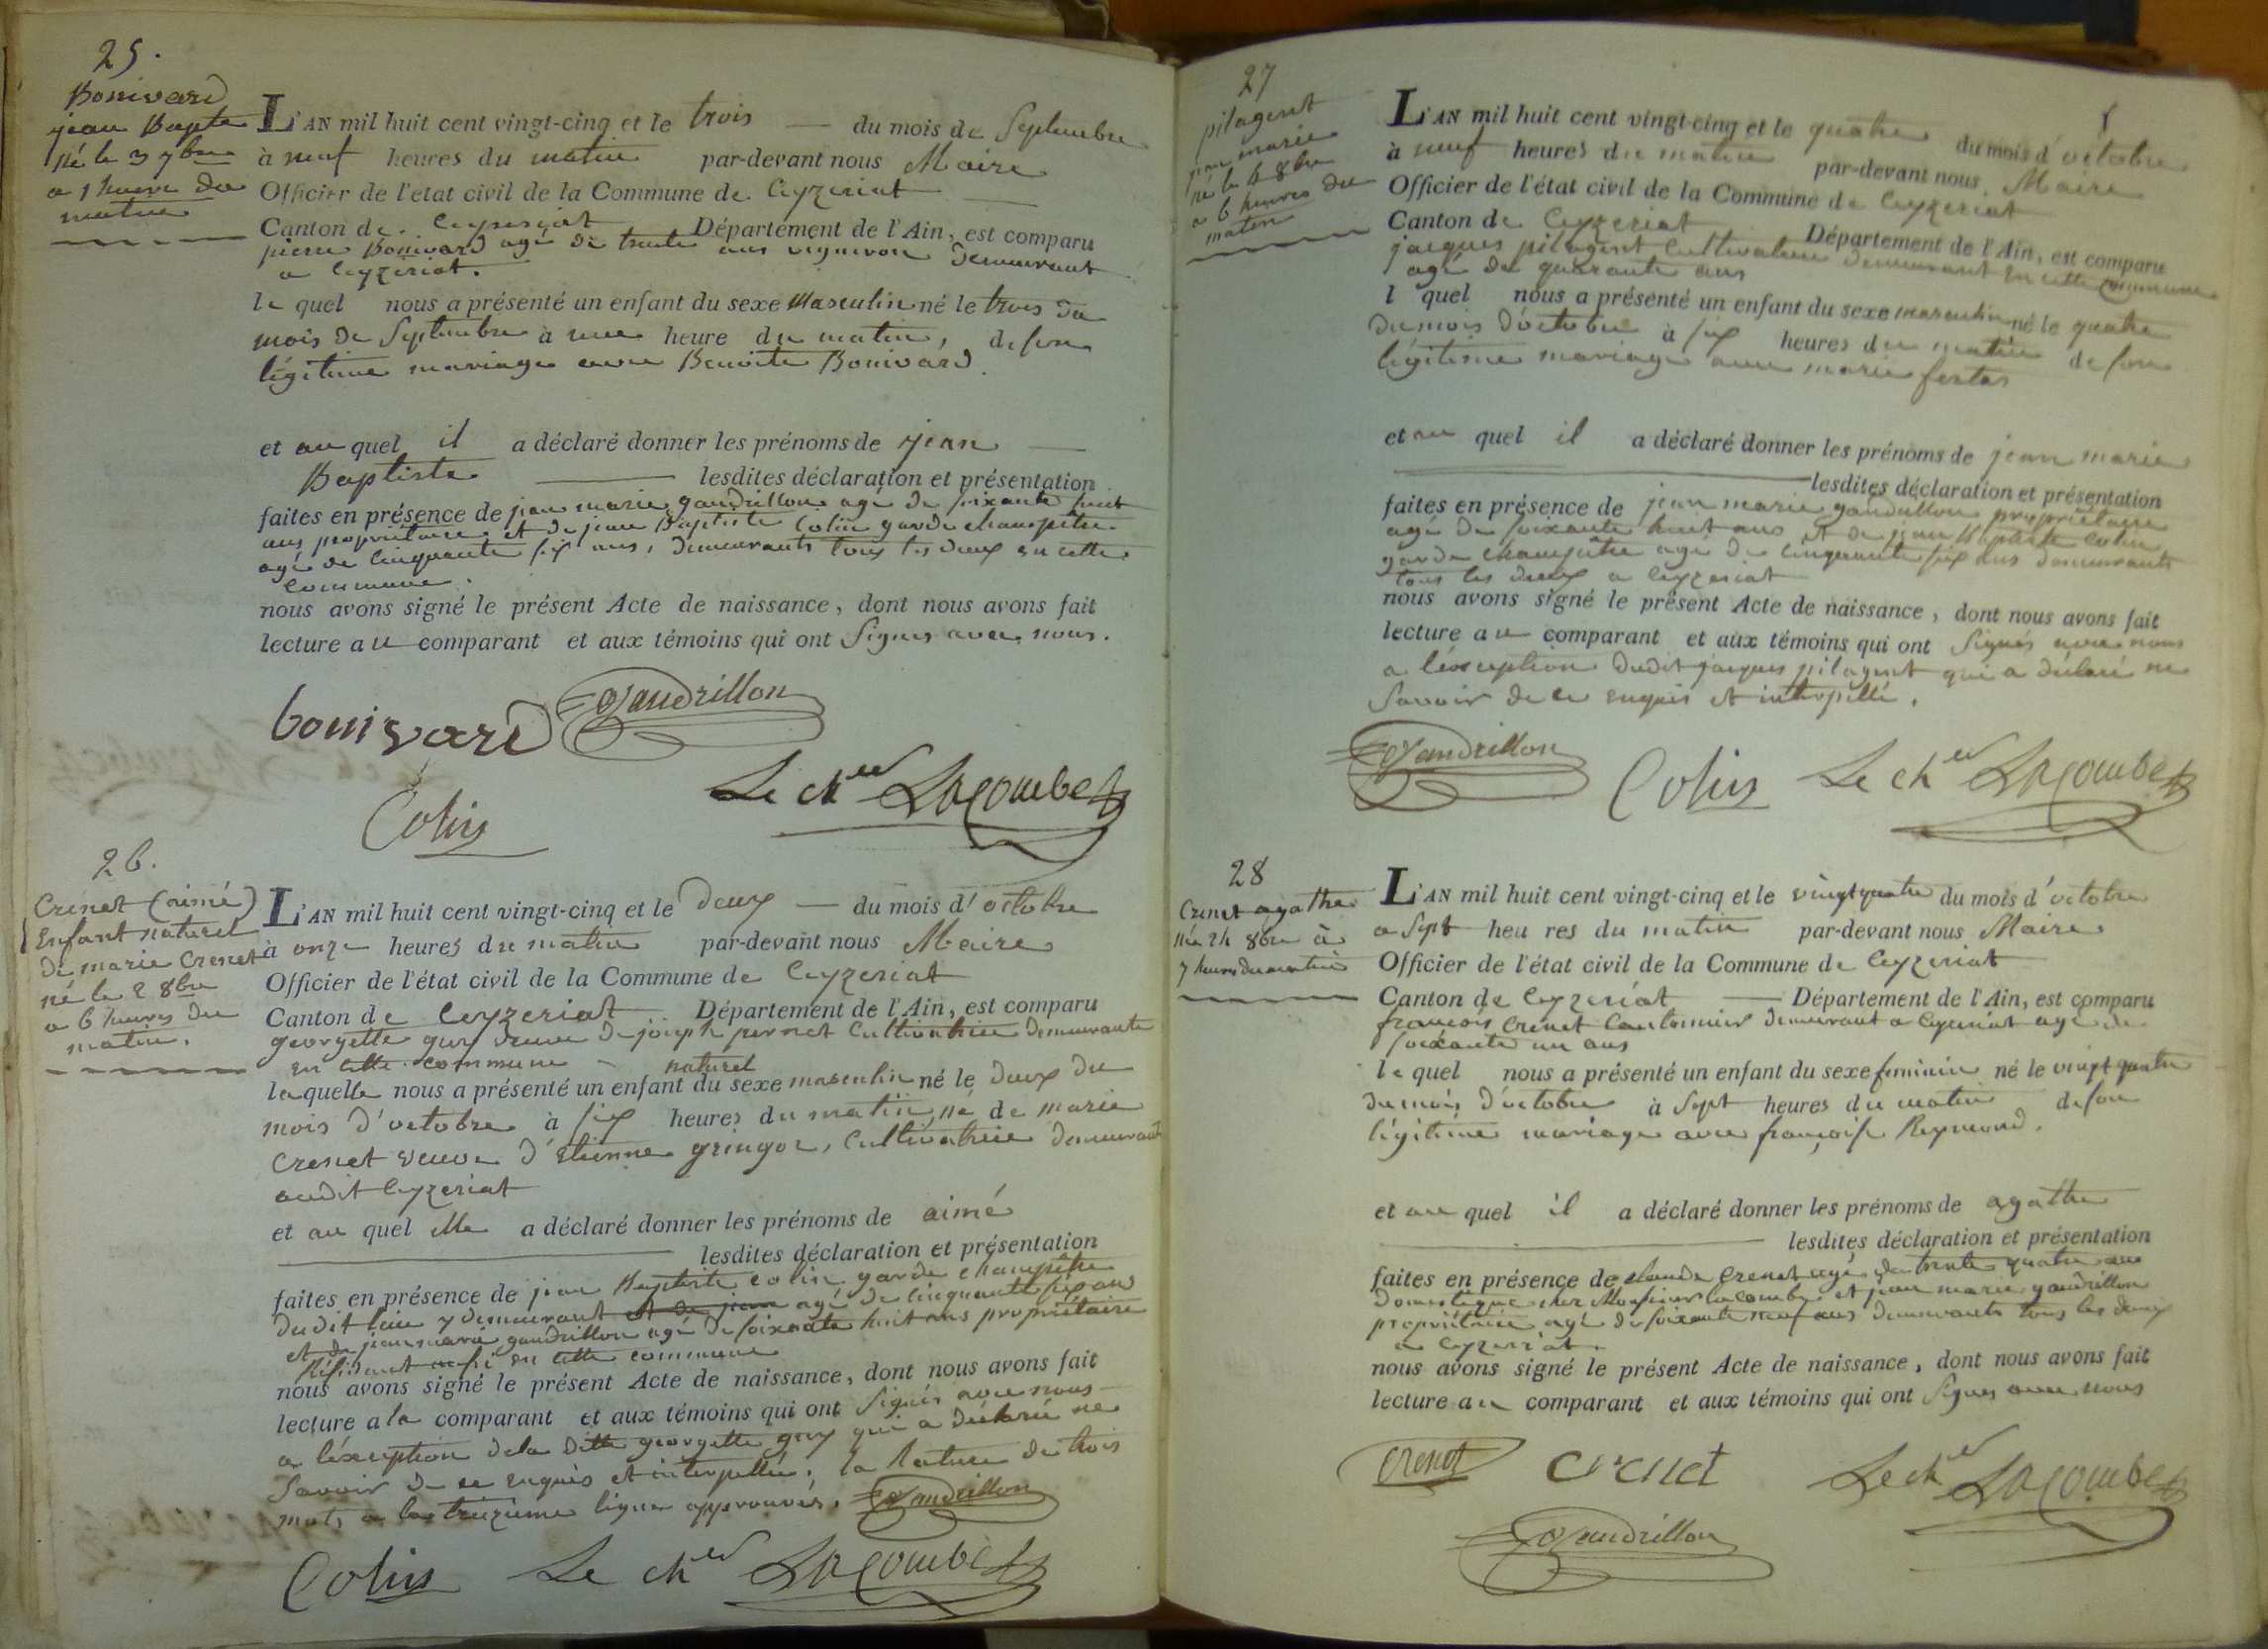 25.
Bonivard
jean Bapte
né le 3 7bre
a 1 heure du
matin
L'AN mil huit cent vingt-cinq et le trois — du mois de Septembre
à neuf heures du matin par-devant nous Maire
Officier de l'état civil de la Commune de Ceyzeriat
Canton de Ceyzeriat Département de l'Ain, est comparu
pierre Bonivard agé de trente ans vigneron demeurant
a Ceyzeriat.
le quel nous a présenté un enfant du sexe masculin né le trois du
mois de Septembre à une heure du matin, de son
légitime mariage avec Benoite Bonivard.
et au quel il a déclaré donner les prénoms de jean —
Baptiste — lesdites déclaration et présentation
faites en présence de jean marie gaudrillon agé de soixante huit
ans propriétaire et de jean Baptiste Colin garde champêtre
agé de cinquante six ans, demeurants tous les deux en cette
commune.
nous avons signé le présent Acte de naissance, dont nous avons fait
lecture au comparant et aux témoins qui ont signés avec nous.
bonivard Gaudrillon
Colin Le cher Lacombe
26.
Crenet (aimé)
Enfant naturel
de marie Crenet
né le 2 8bre
a 6 heures du
matin.
L'AN mil huit cent vingt-cinq et le Deux — du mois d'octobre
à onze heures du matin par-devant nous Maire
Officier de l'état civil de la Commune de Ceyzeriat
Canton de Ceyzeriat Département de l'Ain, est comparu
georgette guy veuve de joseph pernet Cultivatrice demeurante
en cette commune
naturel
laquelle nous a présenté un enfant du sexe masculin né le deux du
mois d'octobre à six heures du matin, né de marie
Crenet veuve d'Etienne gringoz, Cultivatrice demeurant
audit Ceyzeriat
et au quel elle a déclaré donner les prénoms de aimé
lesdites déclaration et présentation
faites en présence de jean Baptiste colin garde champêtre
dudit lieu y demeurant et de jean agé de cinquante six ans
et de jean marie gaudrillon agé de soixante huit ans propriétaire
Résident aussi en cette commune
nous avons signé le présent Acte de naissance, dont nous avons fait
lecture a la comparant et aux témoins qui ont signés avec nous
a l'éxception de la ditte georgette guy qui a déclaré ne
Savoir de ce enquis et interpellée. la Rature de trois
mots a la treizieme ligne approuvés. Gaudrillon
Colin Le cher Lacombe
27
pilagent
jean marie
né le 4 8bre
a 6 heures du
matin
L'AN mil huit cent vingt-cinq et le quatre du mois d'octobre
à neuf heures du matin par-devant nous Maire
Officier de l'état civil de la Commune de Ceyzeriat
Canton de Ceyzeriat Département de l'Ain, est comparu
jacques pilagent Cultivateur demeurant en cette commune
agé de quarante ans
l quel nous a présenté un enfant du sexe masculin né le quatre
du mois d'octobre à six heures du matin de son
légitime mariage avec marie
et au quel il a déclaré donner les prénoms de jean marie
lesdites déclaration et présentation
faites en présence de jean marie gaudrillon propriétaire
agé de soixante huit ans et de jean Baptiste Colin
garde champêtre agé de cinquante six ans demeurants
tous les deux a Ceyzeriat
nous avons signé le présent Acte de naissance, dont nous avons fait
lecture au comparant et aux témoins qui ont signés avec nous
a l'éxception dudit jacques pilagent qui a déclaré ne
Savoir de ce enquis et interpellé.
Gaudrillon Colin Le cher Lacombe
28
Crenet agathe
née 24 8bre à
7 heures du matin
L'AN mil huit cent vingt-cinq et le vingt quatre du mois d'octobre
a Sept heures du matin par-devant nous Maire
Officier de l'état civil de la Commune de Ceyzeriat
Canton de Ceyzeriat — Département de l'Ain, est comparu
françois Crenet Cantonnier demeurant a Ceyzeriat agé de
soixante un ans
le quel nous a présenté un enfant du sexe feminin né le vingt quatre
du mois d'octobre à Sept heures du matin de son
légitime mariage avec françoise Reymond.
et au quel il a déclaré donner les prénoms de agathe
lesdites déclaration et présentation
faites en présence de claude Crenet agé de trente quatre ans
Domestique chez Monsieur lacombe. et jean marie gaudrillon
propriétaire agé de soixante neuf ans demeurants tous les deux
a Ceyzeriat.
nous avons signé le présent Acte de naissance, dont nous avons fait
lecture au comparant et aux témoins qui ont signés avec nous
Crenet crenet Le cher Lacombe
Gaudrillon